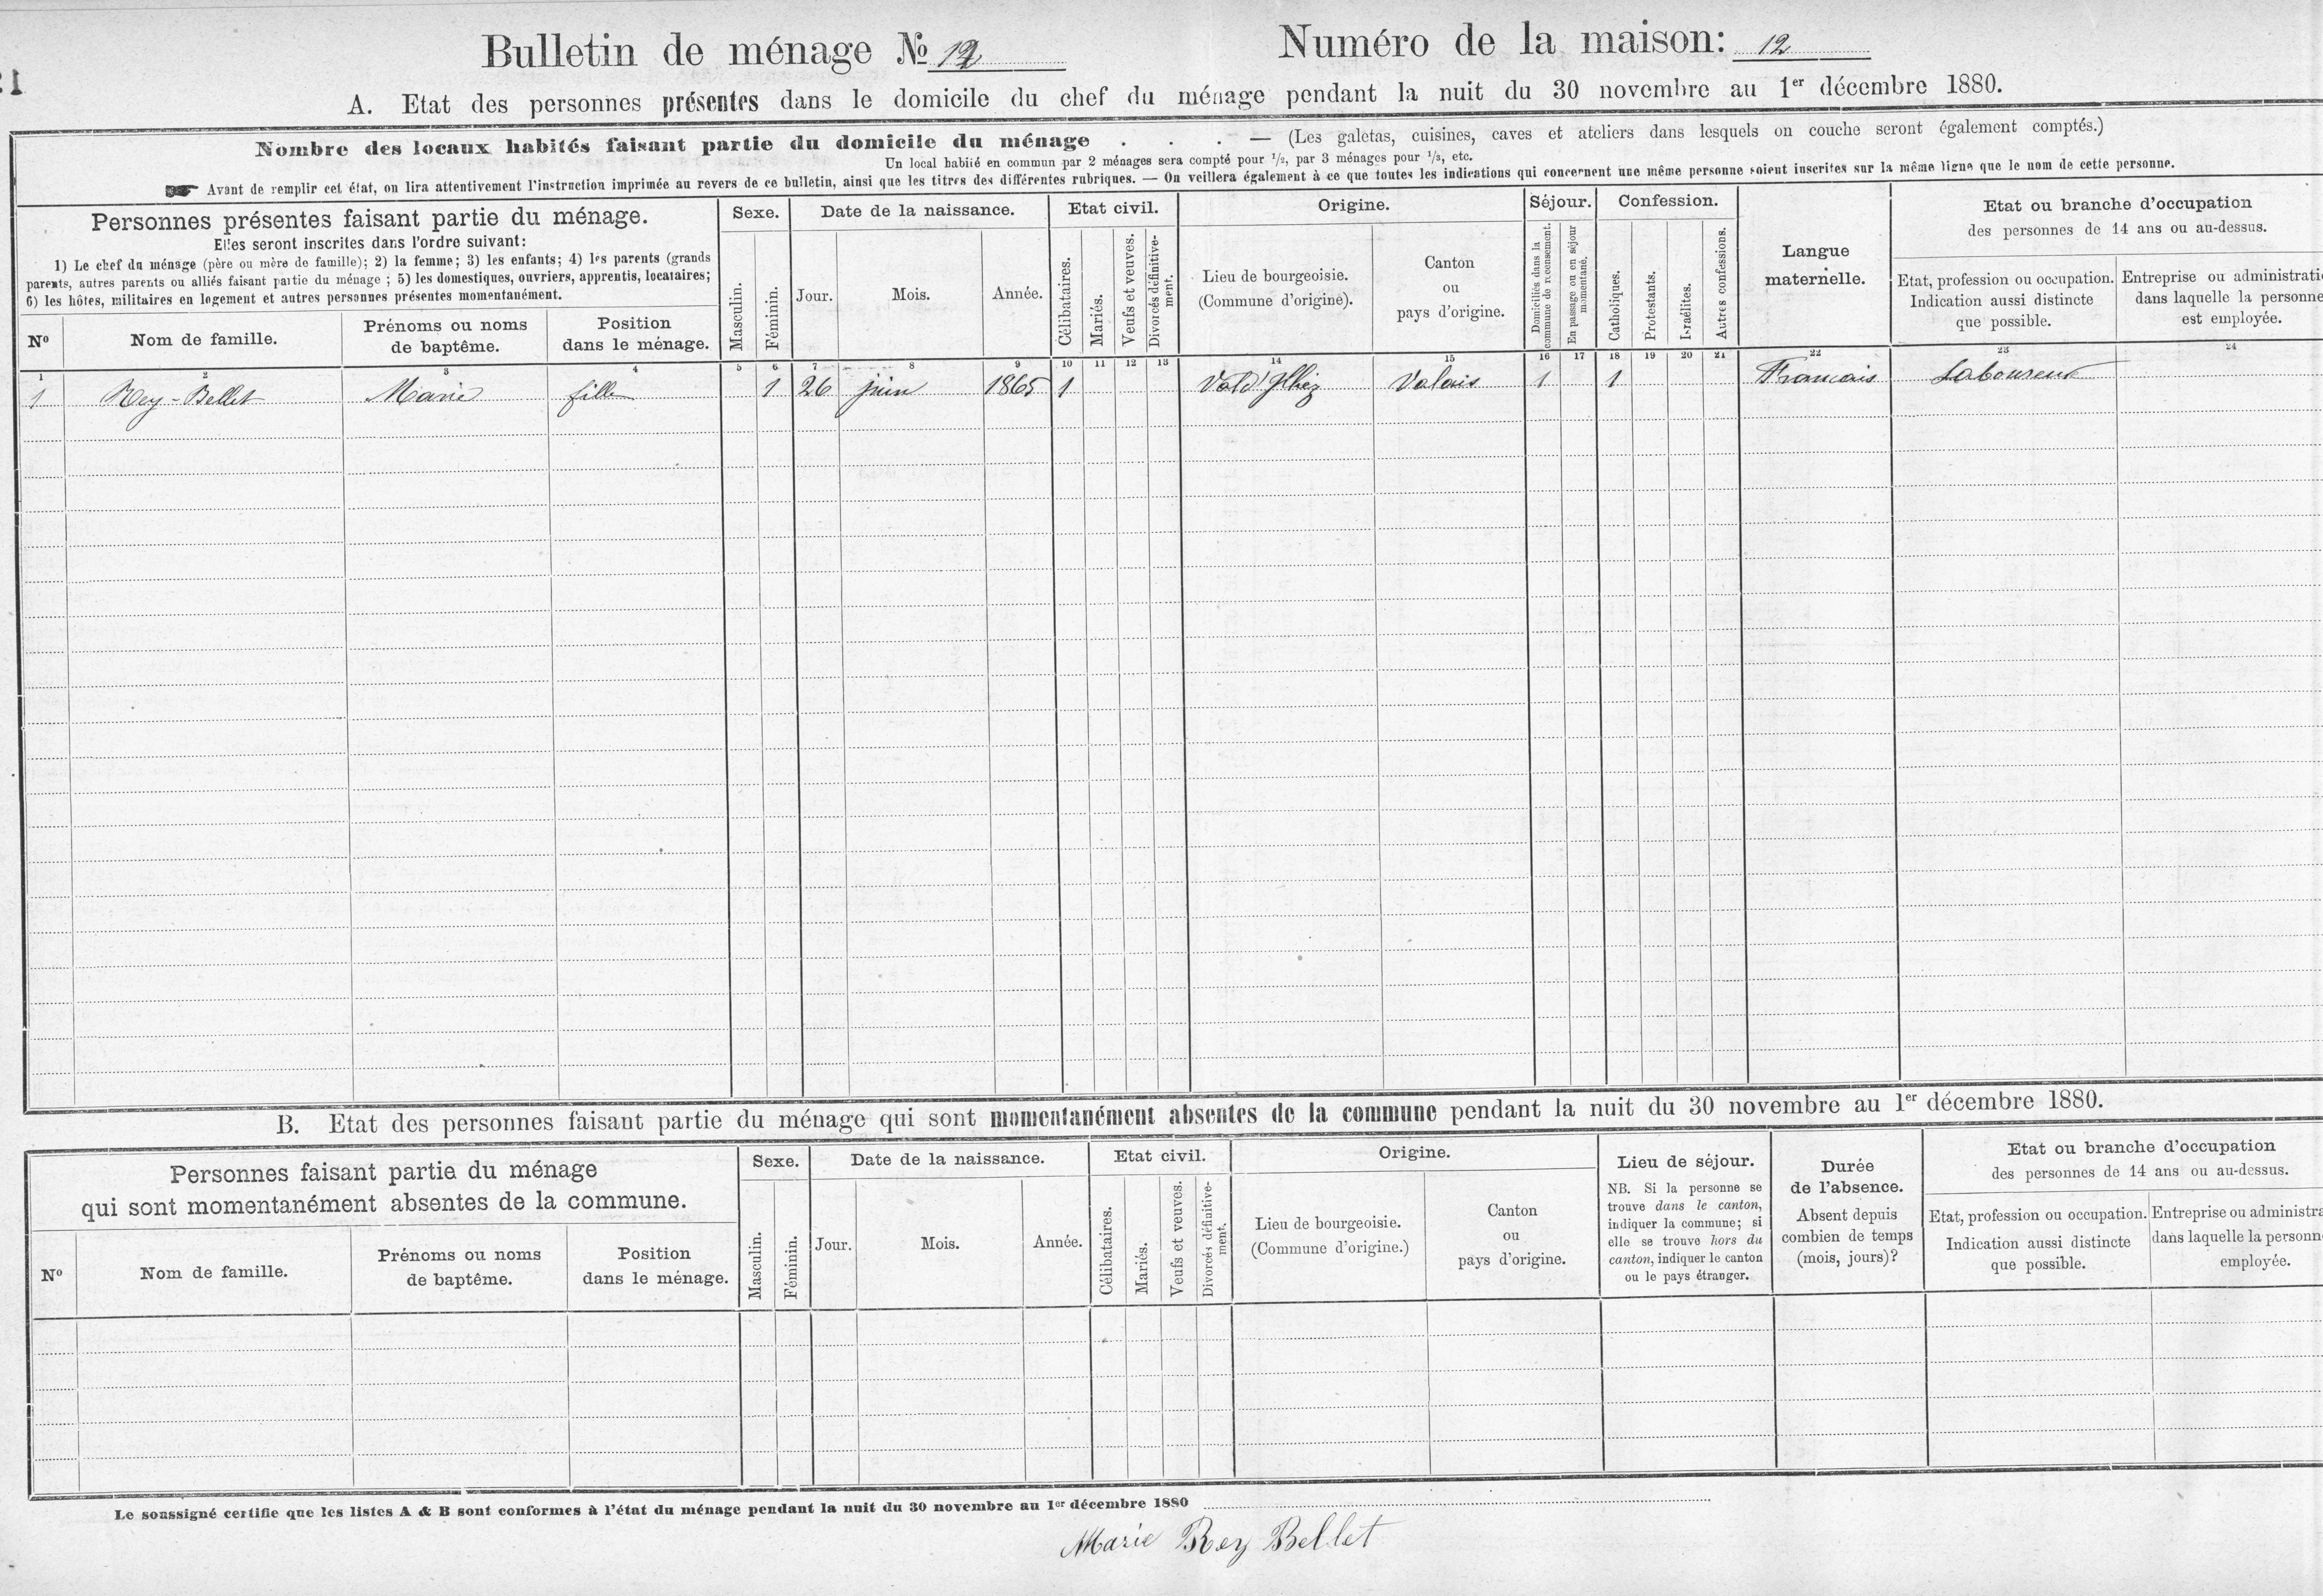 Bulletin de ménage № 12
Numéro de la maison: 12
A. Etat des personnes présentes dans le domicile du chef du ménage pendant la nuit du 30 novembre au 1er décembre 1880.
Nombre des locaux habités faisant partie du domicile du ménage . . . — (Les galetas, cuisines, caves et ateliers dans lesquels on couche seront également comptés.)
Un local habité en commun par 2 ménages sera compté pour 1/2, par 3 ménages pour 1/3, etc.
☛ Avant de remplir cet état, on lira attentivement l'instruction imprimée au revers de ce bulletin, ainsi que les titres des différentes rubriques. — On veillera également à ce que toutes les indications qui concernent une même personne soient inscrites sur la même ligne que le nom de cette personne.
Personnes présentes faisant partie du ménage.
Elles seront inscrites dans l'ordre suivant:
1) Le chef du ménage (père ou mère de famille); 2) la femme; 3) les enfants; 4) les parents (grands
parents, autres parents ou alliés faisant partie du ménage ; 5) les domestiques, ouvriers, apprentis, locataires;
6) les hôtes, militaires en logement et autres personnes présentes momentanément.
Nº
Nom de famille.
Prénoms ou noms
de baptême.
Position
dans le ménage.
Sexe.
Masculin.
Féminin.
Date de la naissance.
Jour.
Mois.
Année.
Etat civil.
Célibataires.
Mariés.
Veufs et veuves.
Divorcés définitive-
ment.
Origine.
Lieu de bourgeoisie.
(Commune d'origine).
Canton
ou
pays d'origine.
Séjour.
Domiciliés dans la
commune de recensement.
En passage ou en séjour
momentané.
Confession.
Catholiques.
Protestants.
Israélites.
Autres confessions.
Langue
maternelle.
Etat ou branche d'occupation
des personnes de 14 ans ou au-dessus.
Etat, profession ou occupation.
Indication aussi distincte
que possible.
Entreprise ou administrati
dans laquelle la personne
est employée.
1 2 3 4 5 6 7 8 9 10 11 12 13 14 15 16 17 18 19 20 21 22 23 24
1 Rey-Bellet Marie fille 1 26 juin 1865 1 Vald'Illiez Valais 1 1 Francais Laboureur
B. Etat des personnes faisant partie du ménage qui sont momentanément absentes de la commune pendant la nuit du 30 novembre au 1er décembre 1880.
Personnes faisant partie du ménage
qui sont momentanément absentes de la commune.
Nº
Nom de famille.
Prénoms ou noms
de baptême.
Position
dans le ménage.
Sexe.
Masculin.
Féminin.
Date de la naissance.
Jour.
Mois.
Année.
Etat civil.
Célibataires.
Mariés.
Veufs et veuves.
Divorcés définitive-
ment.
Origine.
Lieu de bourgeoisie.
(Commune d'origine.)
Canton
ou
pays d'origine.
Lieu de séjour.
NB. Si la personne se
trouve dans le canton,
indiquer la commune; si
elle se trouve hors du
canton, indiquer le canton
ou le pays étranger.
Durée
de l'absence.
Absent depuis
combien de temps
(mois, jours)?
Etat ou branche d'occupation
des personnes de 14 ans ou au-dessus.
Etat, profession ou occupation.
Indication aussi distincte
que possible.
Entreprise ou administra
dans laquelle la personn
employée.
Le soussigné certifie que les listes A & B sont conformes à l'état du ménage pendant la nuit du 30 novembre au 1er décembre 1880
Marie Rey Bellet